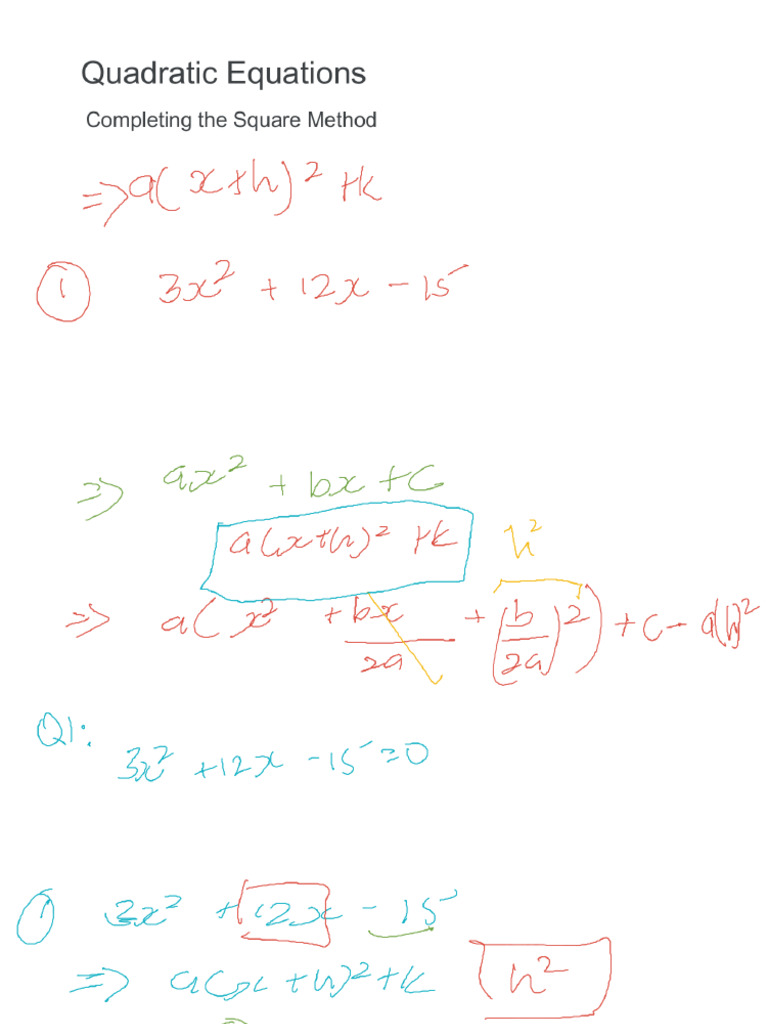 Quadratic Equations
Completing the Square Method
=> a(x+h)² + k
① 3x² + 12x - 15
=> ax² + bx + c
a(x+h)² + k h²
=> a(x² + bx/2a + (b/2a)²) + c - a(h)²
Q1:
3x² + 12x - 15 = 0
① 3x² + 12x - 15
=> a(x+h)² + k h²